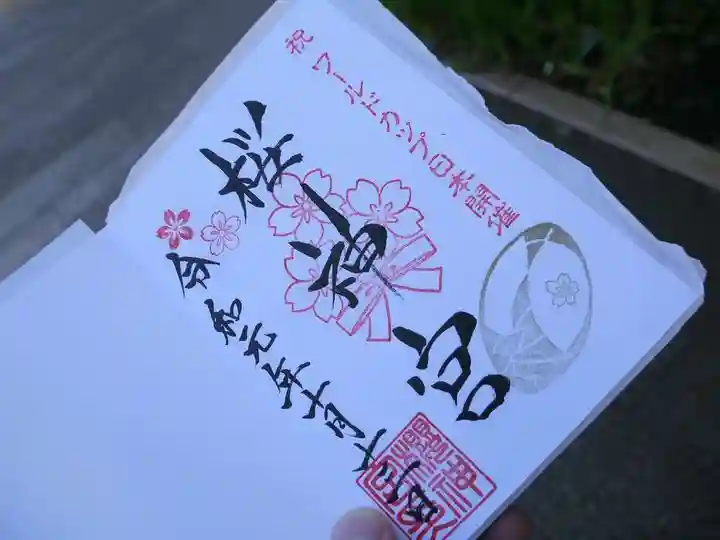 祝 ワールドカップ日本開催
桜神宮
令和元年十月十六日